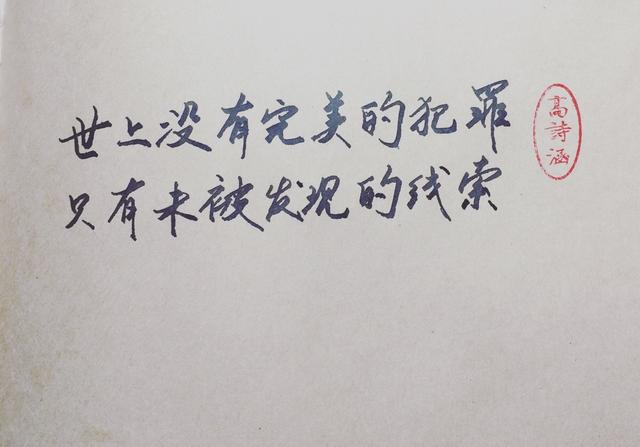 世上没有完美的犯罪
只有未被发现的线索
高詩涵